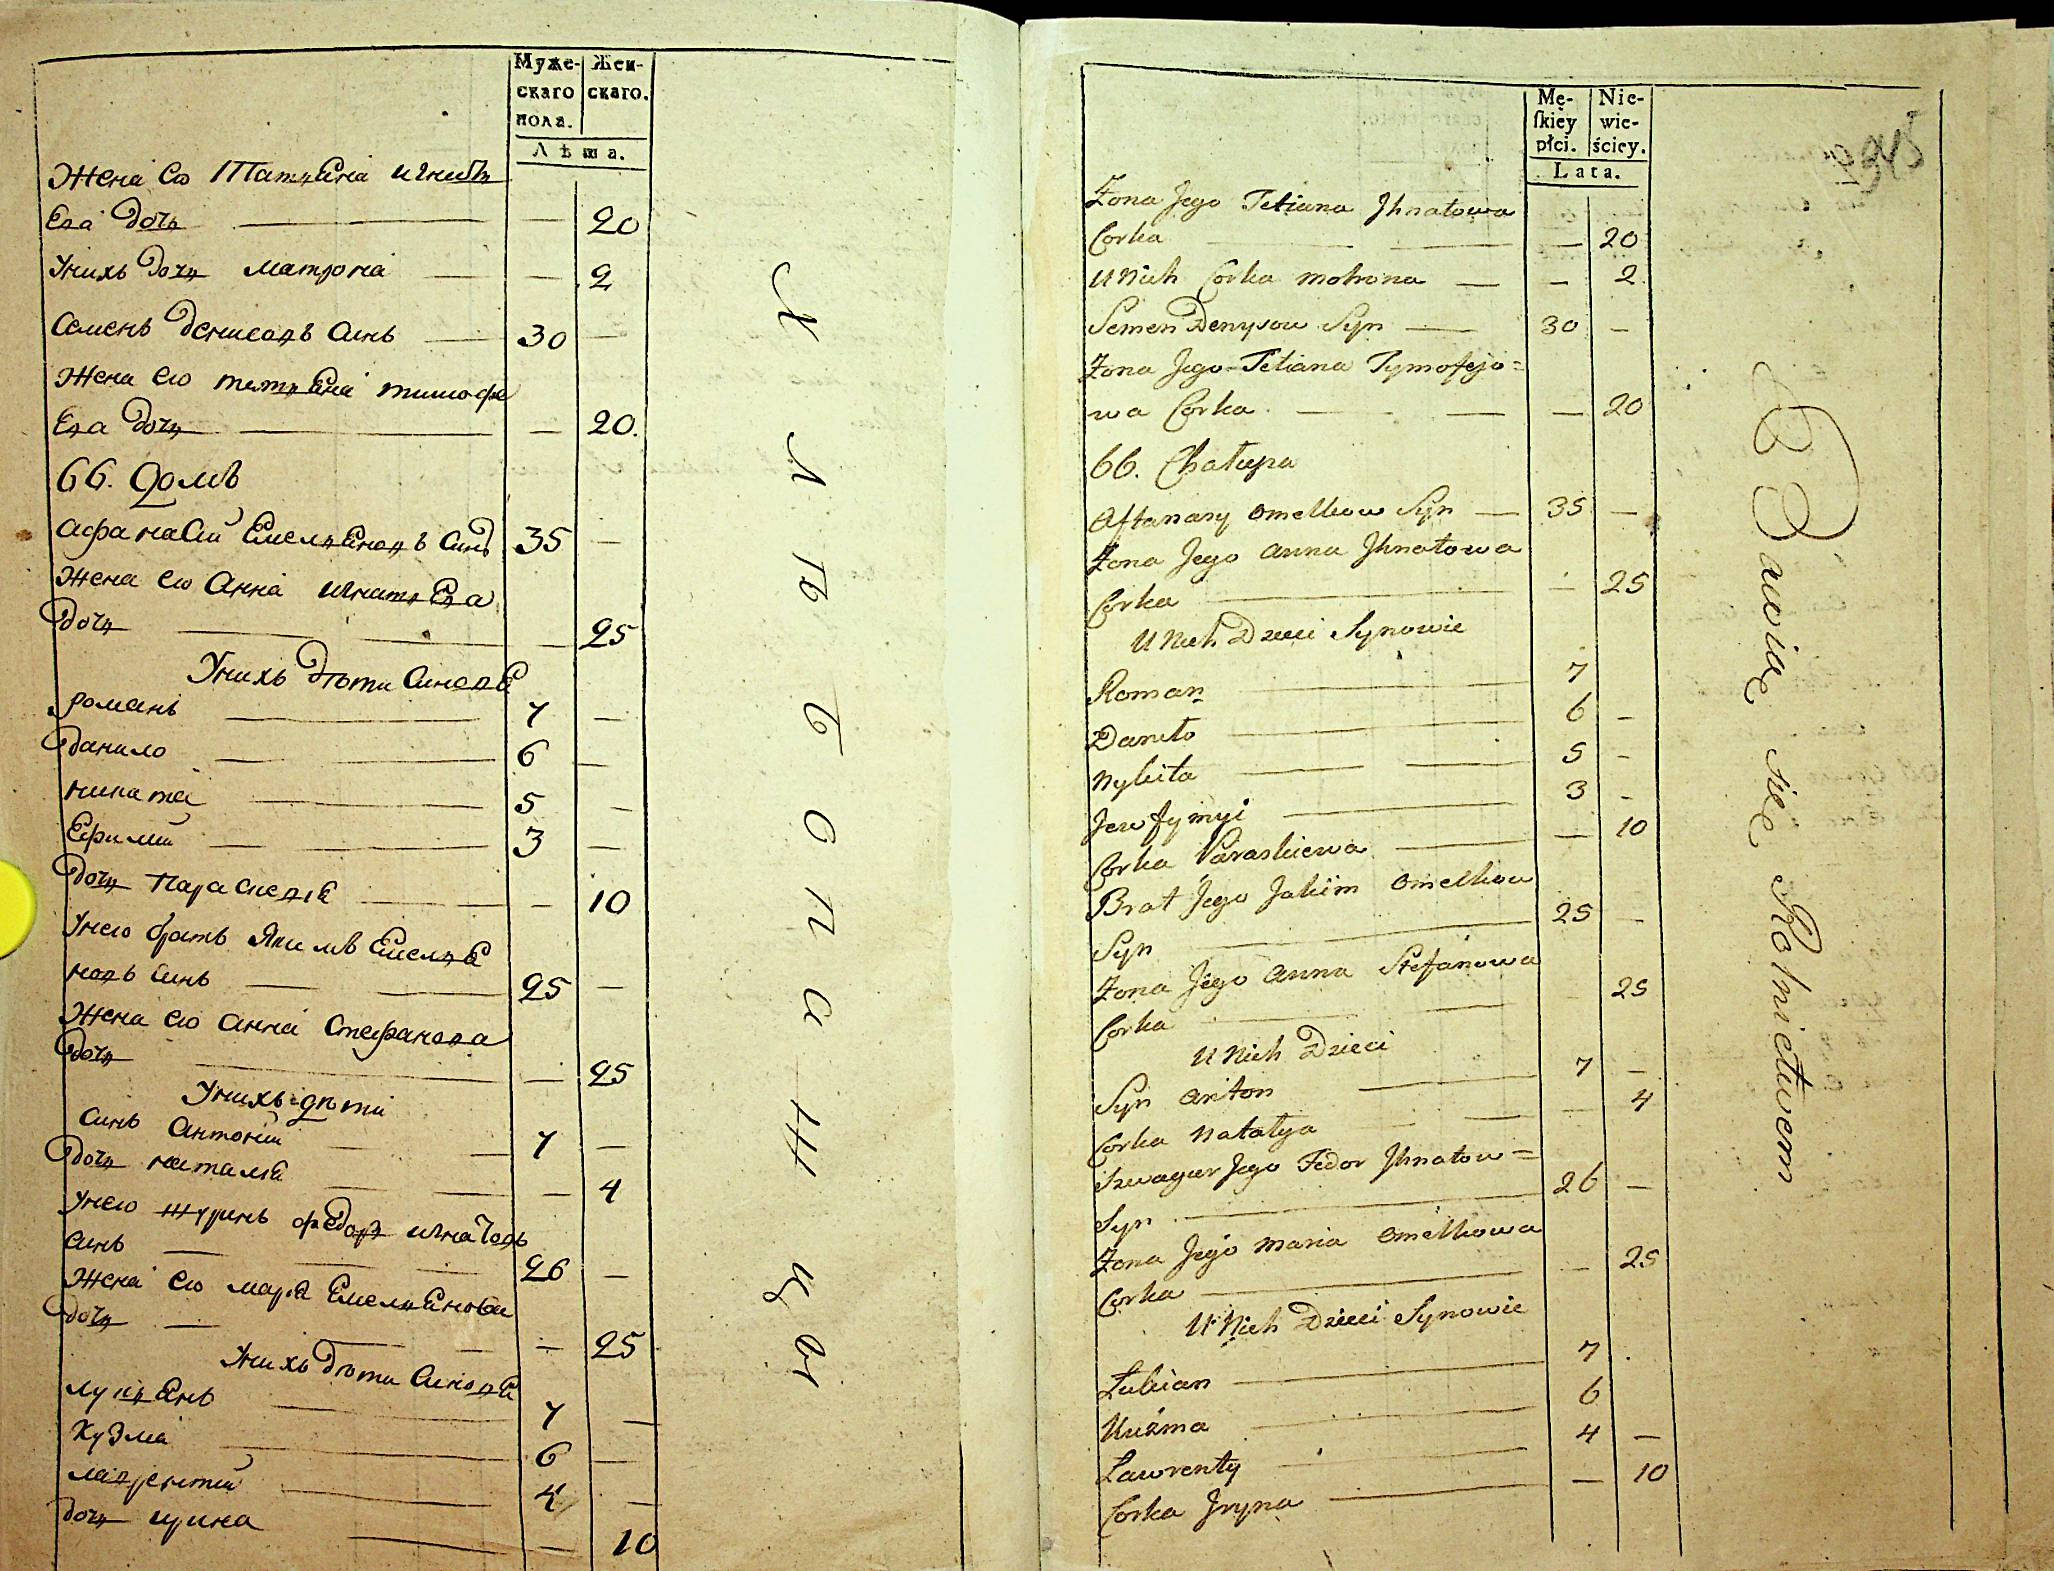 Муже-
скаго
пола.
Жен-
скаго.
Лѣта.
Жена Ею Татяна Игнатъ
ева дочъ — — 20
Унихъ дочъ Матрона — — 2
Семенъ Денисовъ синъ — 30 —
Жена его татяна тимофе
ева дочъ — — 20.
66. Домъ
Афанасій Емеляновъ синъ 35 —
Жена ею Анна игнатева
дочъ — — 25
Унихъ дѣти синове
романъ — 7 —
данило — 6 —
никита — 5 —
Ефимій — 3 —
дочъ Параскевія — — 10
Унею братъ Якимъ Емеля
новъ синъ — 25 —
Жена ею анна Стефанова
дочъ — — 25
Унихъ дѣти
синъ Антоній — 7 —
дочъ наталія — — 4
Унею шуринъ федоръ игнатовъ
синъ — 26 —
Жена ею марія Емелянова
дочъ — — 25
Унихъ дѣти синове
лукянъ — 7 —
Кузма — 6 —
лаврентій — 4 —
дочъ ирина — — 10
Хлѣбопашцы
Mę-
ſkiey
płci.
Nie-
wie-
ściey.
Lata.
2945
Żona Jego Tetiana Jhnatowa
Corka — — 20
U Nich Corka Motrona — — 2
Semen Denysow Syn — 30 —
Żona Jego Tetiana Tymofejo=
wa Corka — — 20
66. Chałupa
Aftanazy Omelkow Syn — 35 —
Żona Jego Anna Jhnatowa
Corka — — 25
U Nich Dzieci Synowie
Roman — 7
Daniło — 6 —
Nykita — 5 —
Jewfymyi — 3 —
Corka Paraskiewa — — 10
Brat Jego Jakim Omelkow
Syn — 25 —
Żona Jego Anna Stefanowa
Corka — 25
U Nich Dzieci
Syn Anton — 7 —
Corka Natalya — — 4
Szwagier Jego Fedor Jhnatow=
Syn — 26 —
Żona Jego Maria Omelkowa
Corka — — 25
U Nich Dzieci Synowie
Łukian — 7
Kuźma — 6
Ławrenty — 4 —
Corka Jryna — — 10
Bawią się Rolnictwem